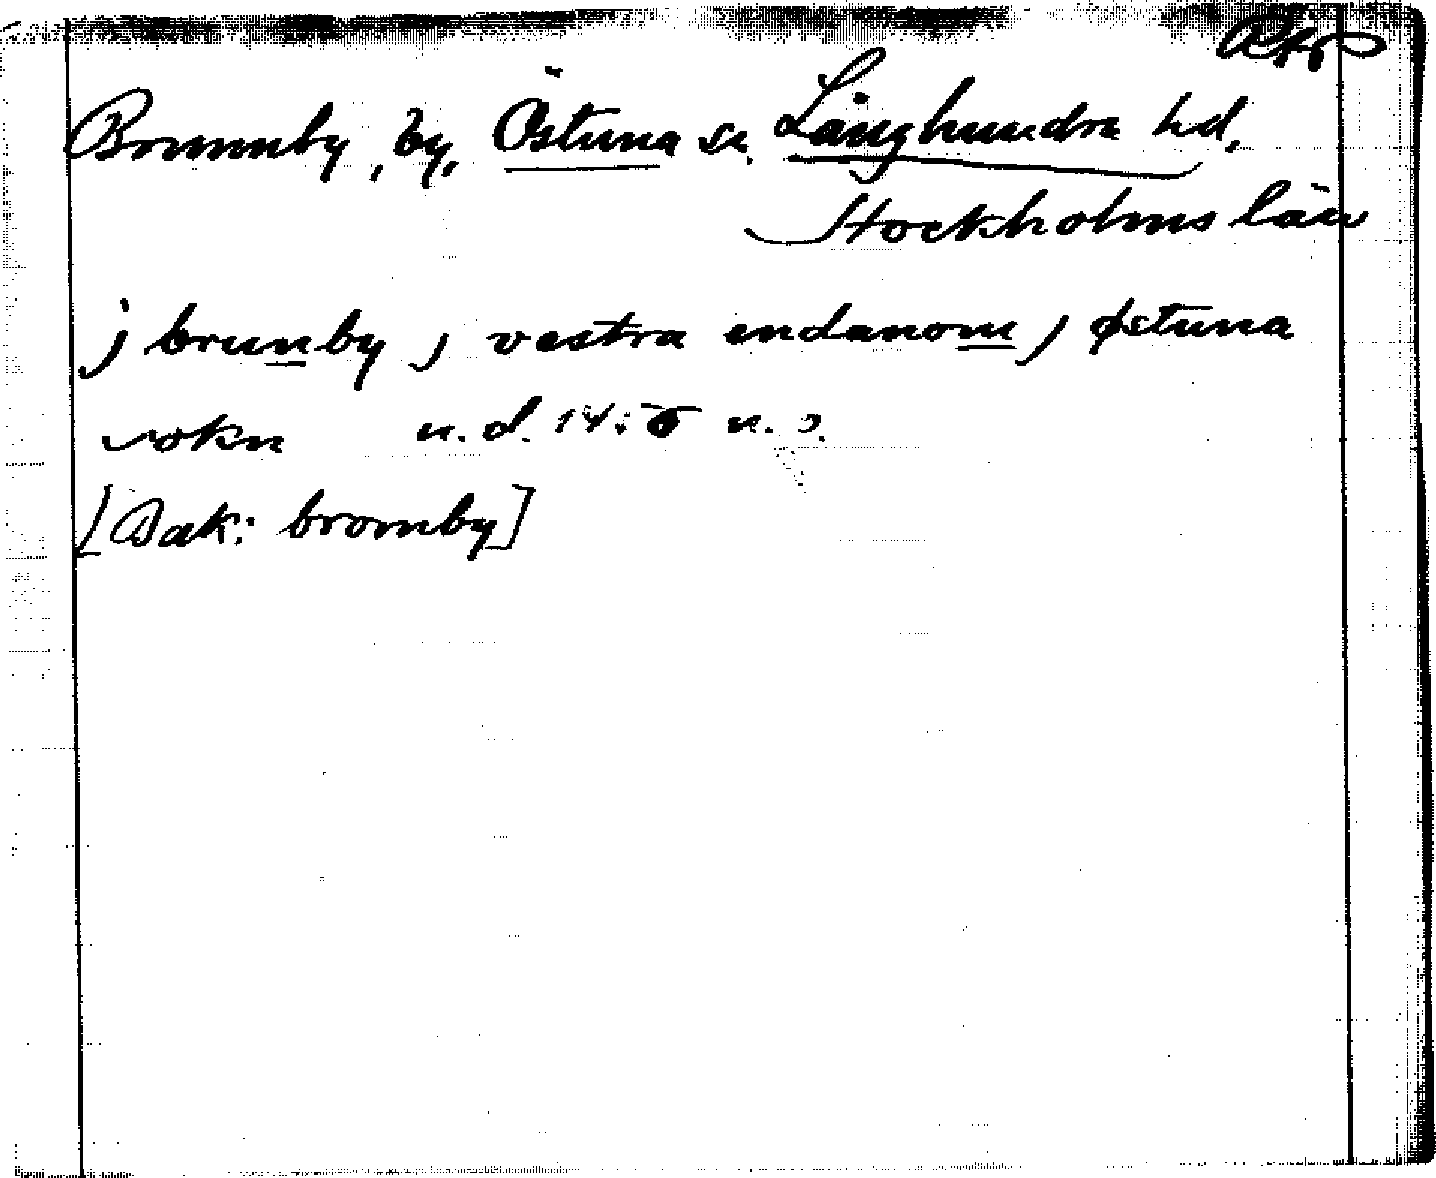 Brunnby, by, Östuna sn. Långhundra hd,
Stockholms län
j brunby j vestra endanom j østuna
sokn u.d. 14: u. s.
[Bak: bromby]